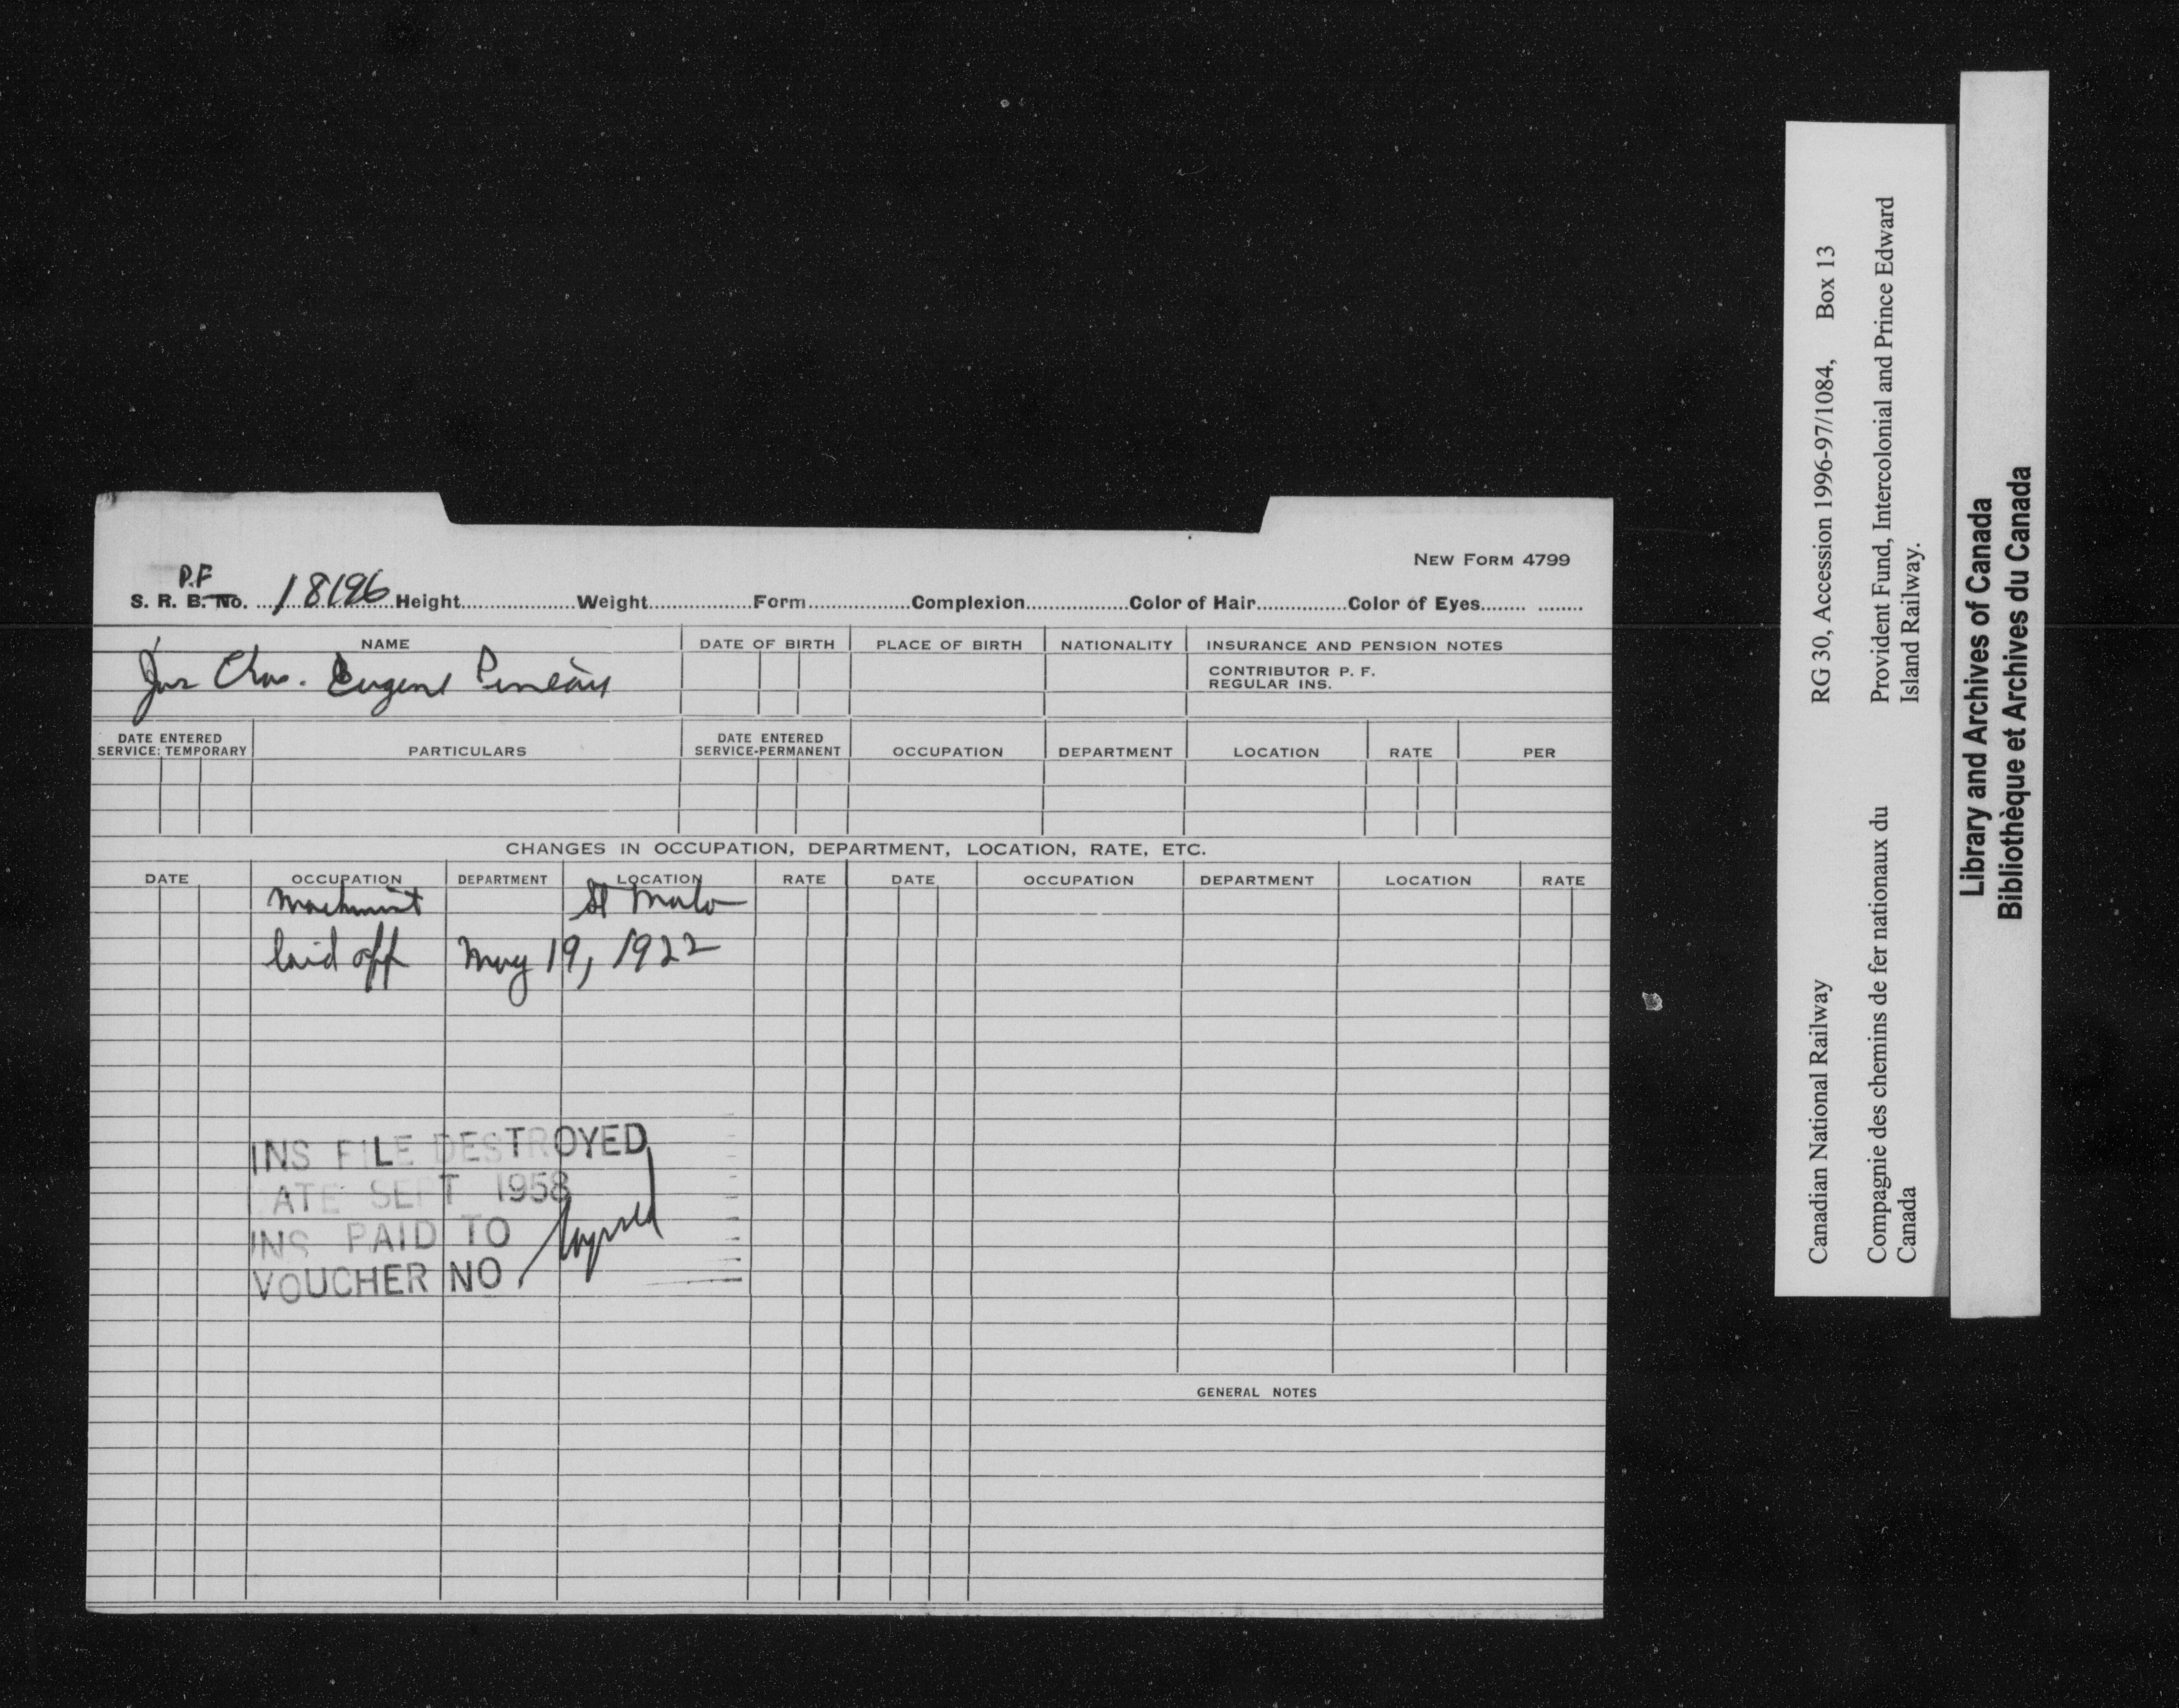 NEW FORM 4799
P.F
S. R. B. No. 18196 Height Weight Form Complexion Color of Hair Color of Eyes
NAME DATE OF BIRTH PLACE OF BIRTH NATIONALITY INSURANCE AND PENSION NOTES
CONTRIBUTOR P. F.
REGULAR INS.
Jos Chas. Eugene Pineau
DATE ENTERED SERVICE: TEMPORARY PARTICULARS DATE ENTERED SERVICE-PERMANENT OCCUPATION DEPARTMENT LOCATION RATE PER
CHANGES IN OCCUPATION, DEPARTMENT, LOCATION, RATE, ETC.
DATE OCCUPATION DEPARTMENT LOCATION RATE DATE OCCUPATION DEPARTMENT LOCATION RATE
Machinist St Malo
laid off May 19, 1922
INS FILE DESTROYED
ATE SEPT 1958
INS PAID TO
VOUCHER NO
GENERAL NOTES
Canadian National Railway RG 30, Accession 1996-97/1084, Box 13
Compagnie des chemins de fer nationaux du Canada
Provident Fund, Intercolonial and Prince Edward Island Railway.
Library and Archives of Canada
Bibliothèque et Archives du Canada